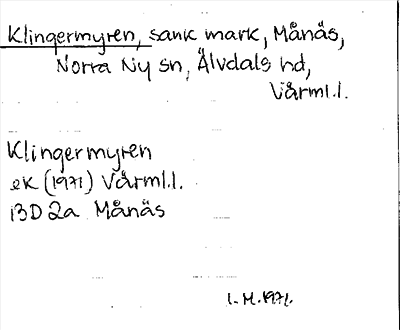 Klingermyren, sank mark, Månäs,
Norra Ny sn, Älvdals hd,
Värml.l.
Klingermyren
ek (1971) Värml.l.
13D 2a Månäs
I.M. 1971.